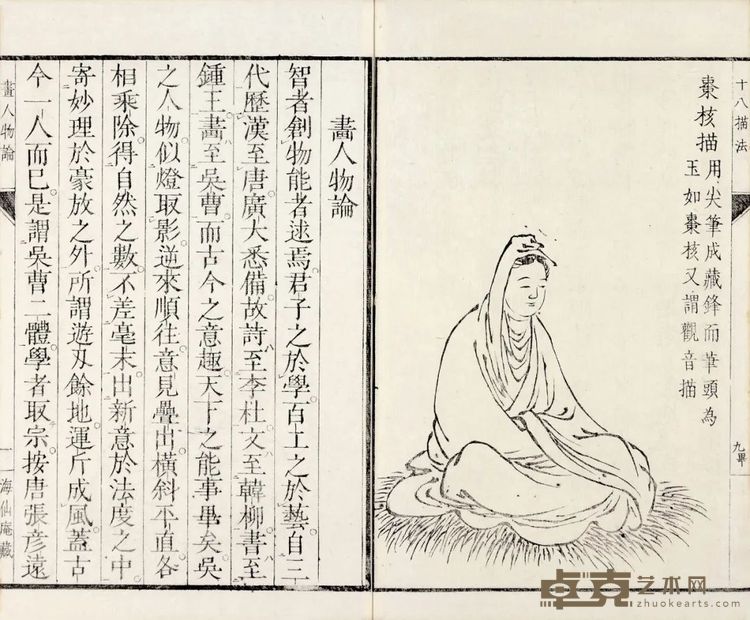 十八描法
棗核描用尖筆成藏鋒而筆頭為
玉如棗核又謂觀音描
九畢
畫人物論
智者創物能者述焉君子之於學百工之於藝自三
代歷漢至唐廣大悉備故詩至李杜文至韓柳書至
鍾王畫至吳曹而古今之意趣天下之能事畢矣吳
之人物似燈取影逆來順往意見疊出橫斜平直各
相乘除得自然之數不差毫末出新意於法度之中
寄妙理於豪放之外所謂遊刃餘地運斤成風蓋古
今一人而巳是謂吳曹二體學者取宗按唐張彥遠
畫人物論
一
海仙庵藏
卓克艺术网
zhuokearts.com